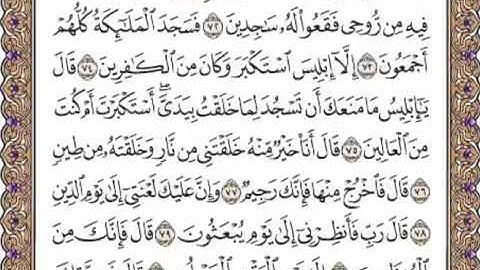 فِيهِ مِن رُّوحِى فَقَعُوا۟ لَهُۥ سَٰجِدِينَ ٧٢ فَسَجَدَ ٱلْمَلَٰٓئِكَةُ كُلُّهُمْ
أَجْمَعُونَ ٧٣ إِلَّآ إِبْلِيسَ ٱسْتَكْبَرَ وَكَانَ مِنَ ٱلْكَٰفِرِينَ ٧٤ قَالَ
يَٰٓإِبْلِيسُ مَا مَنَعَكَ أَن تَسْجُدَ لِمَا خَلَقْتُ بِيَدَىَّ ۖ أَسْتَكْبَرْتَ أَمْ كُنتَ
مِنَ ٱلْعَالِينَ ٧٥ قَالَ أَنَا۠ خَيْرٌ مِّنْهُ خَلَقْتَنِى مِن نَّارٍ وَخَلَقْتَهُۥ مِن طِينٍ
٧٦ قَالَ فَٱخْرُجْ مِنْهَا فَإِنَّكَ رَجِيمٌ ٧٧ وَإِنَّ عَلَيْكَ لَعْنَتِىٓ إِلَىٰ يَوْمِ ٱلدِّينِ
٧٨ قَالَ رَبِّ فَأَنظِرْنِىٓ إِلَىٰ يَوْمِ يُبْعَثُونَ ٧٩ قَالَ فَإِنَّكَ مِنَ